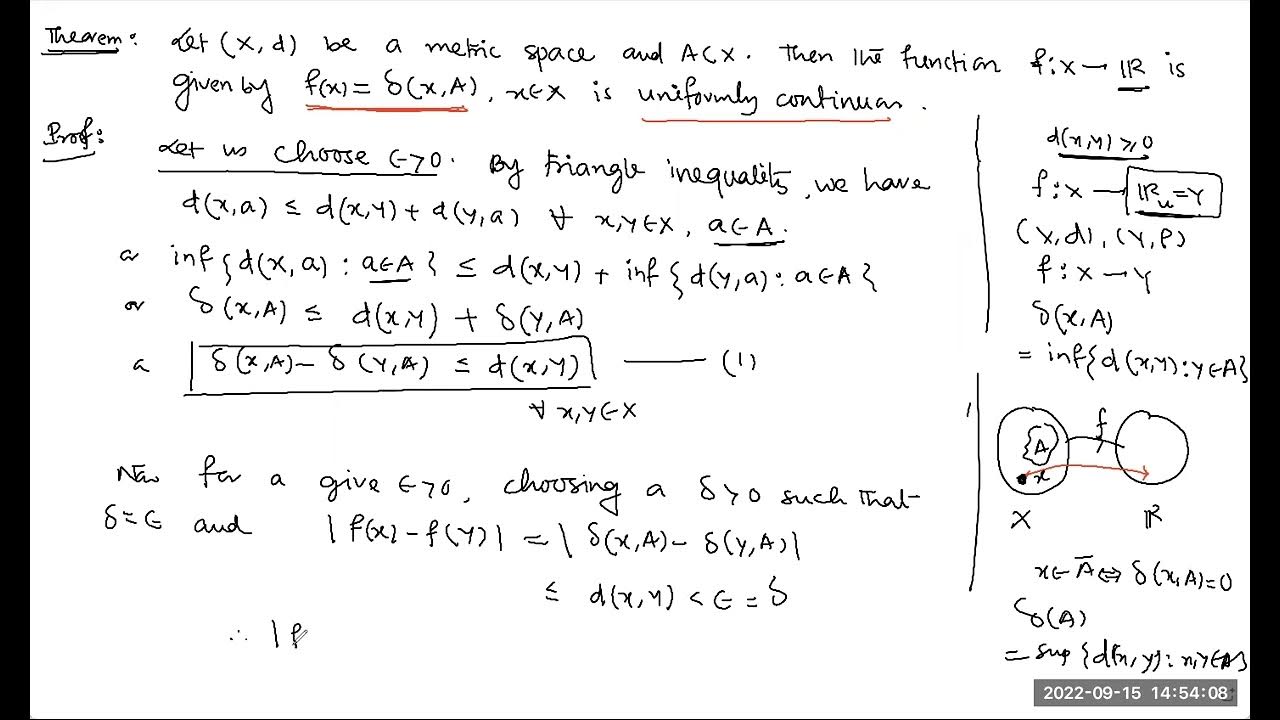 Theorem: Let (X, d) be a metric space and A⊂X. Then the function f: X → ℝ is
given by f(x) = δ(x, A), x∈X is uniformly continuous.
Proof:
Let us choose ∈>0. By triangle inequality, we have
d(x,a) ≤ d(x,y) + d(y,a) ∀ x,y∈X, a∈A.
or inf{d(x,a) : a∈A} ≤ d(x,y) + inf{d(y,a) : a∈A}
or δ(x,A) ≤ d(x,y) + δ(y,A)
or δ(x,A) – δ(y,A) ≤ d(x,y) —— (1)
∀ x,y∈X
Now for a give ∈>0, choosing a δ>0 such that
δ=∈ and |f(x) – f(y)| = |δ(x,A) – δ(y,A)|
≤ d(x,y) < ∈ = δ
∴ |f
d(x,y) ≥ 0
f: X → ℝu = Y
(X,d), (Y,ρ)
f: X → Y
δ(x,A)
= inf{d(x,y) : y∈A}
f
A
x
X ℝ
x∈Ā ⇔ δ(x,A)=0
δ(A)
= sup{d(x,y) : x,y∈A}
2022-09-15 14:54:08